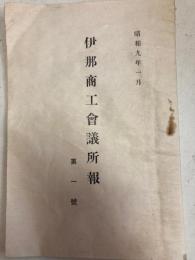 昭和九年一月
伊那商工會議所報
第一號